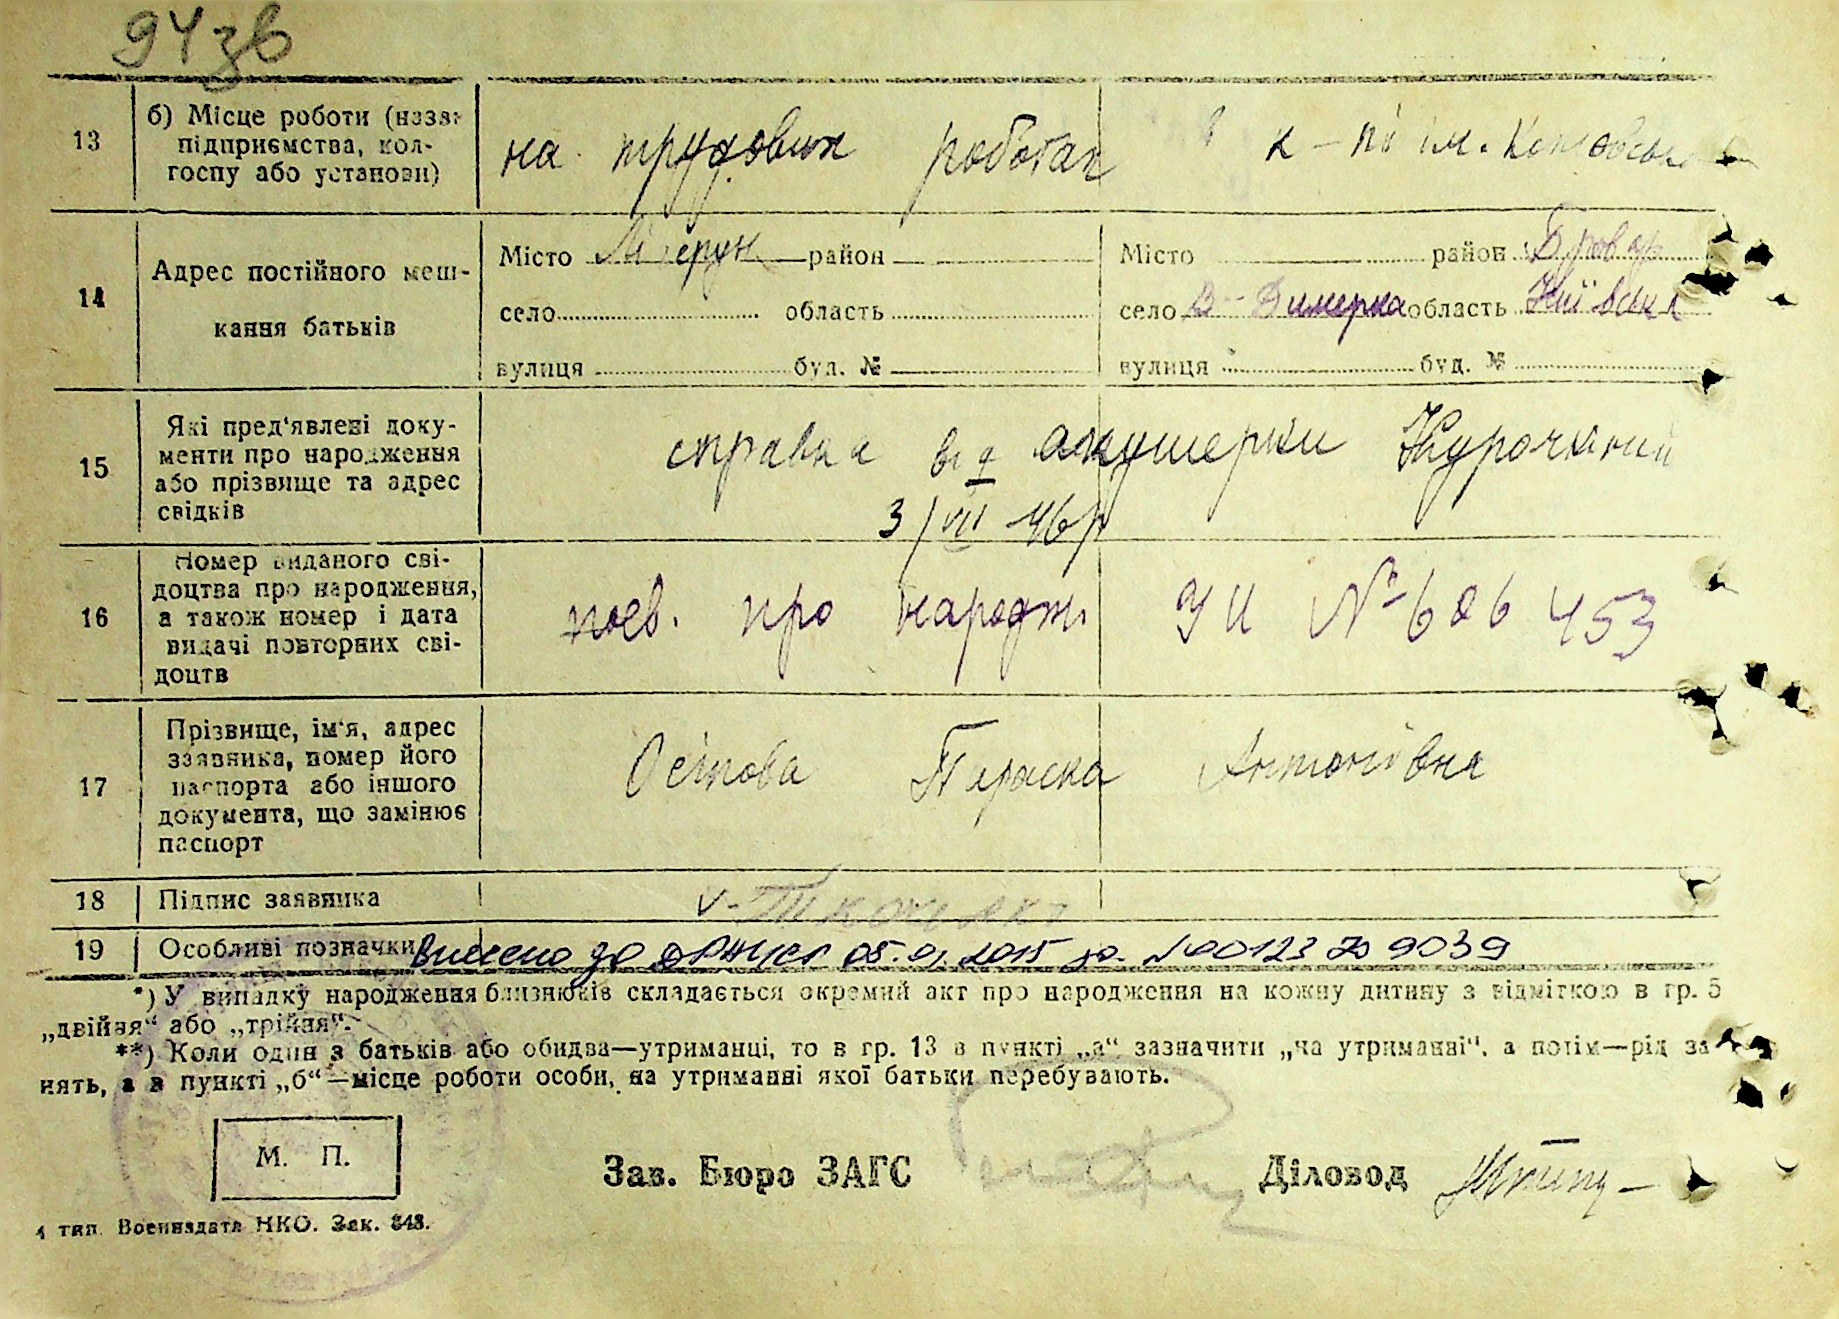 94зв
13 б) Місце роботи (назва підприємства, колгоспу або установи) на трудових роботах к-п ім.
14 Адрес постійного мешкання батьків
Місто район Місто район Бровар
село область село В-Димерка область Київська
вулиця буд. № вулиця буд. №
15 Які пред'явлені документи про народження або прізвище та адрес свідків
справка від акушерки
3/VII 46р
16 Номер виданого свідоцтва про народження, а також номер і дата видачі повторних свідоцтв
про народж. УИ № 606 453
17 Прізвище, ім'я, адрес заявника, номер його паспорта або іншого документа, що замінює паспорт
Осіпова Параска Антонівна
18 Підпис заявника
19 Особливі позначки до 2015 № 00123 9039
*) У випадку народження близнюків складається окремий акт про народження на кожну дитину з відміткою в гр. 5
„двійня“ або „трійня“.
**) Коли один з батьків або обидва—утриманці, то в гр. 13 в пункті „а“ зазначити „на утриманні“, а потім—рід за
нять, а в пункті „б“—місце роботи особи, на утриманні якої батьки перебувають.
М. П. Зав. Бюро ЗАГС Діловод
4 тип. Воениздата НКО. Зак. 343.